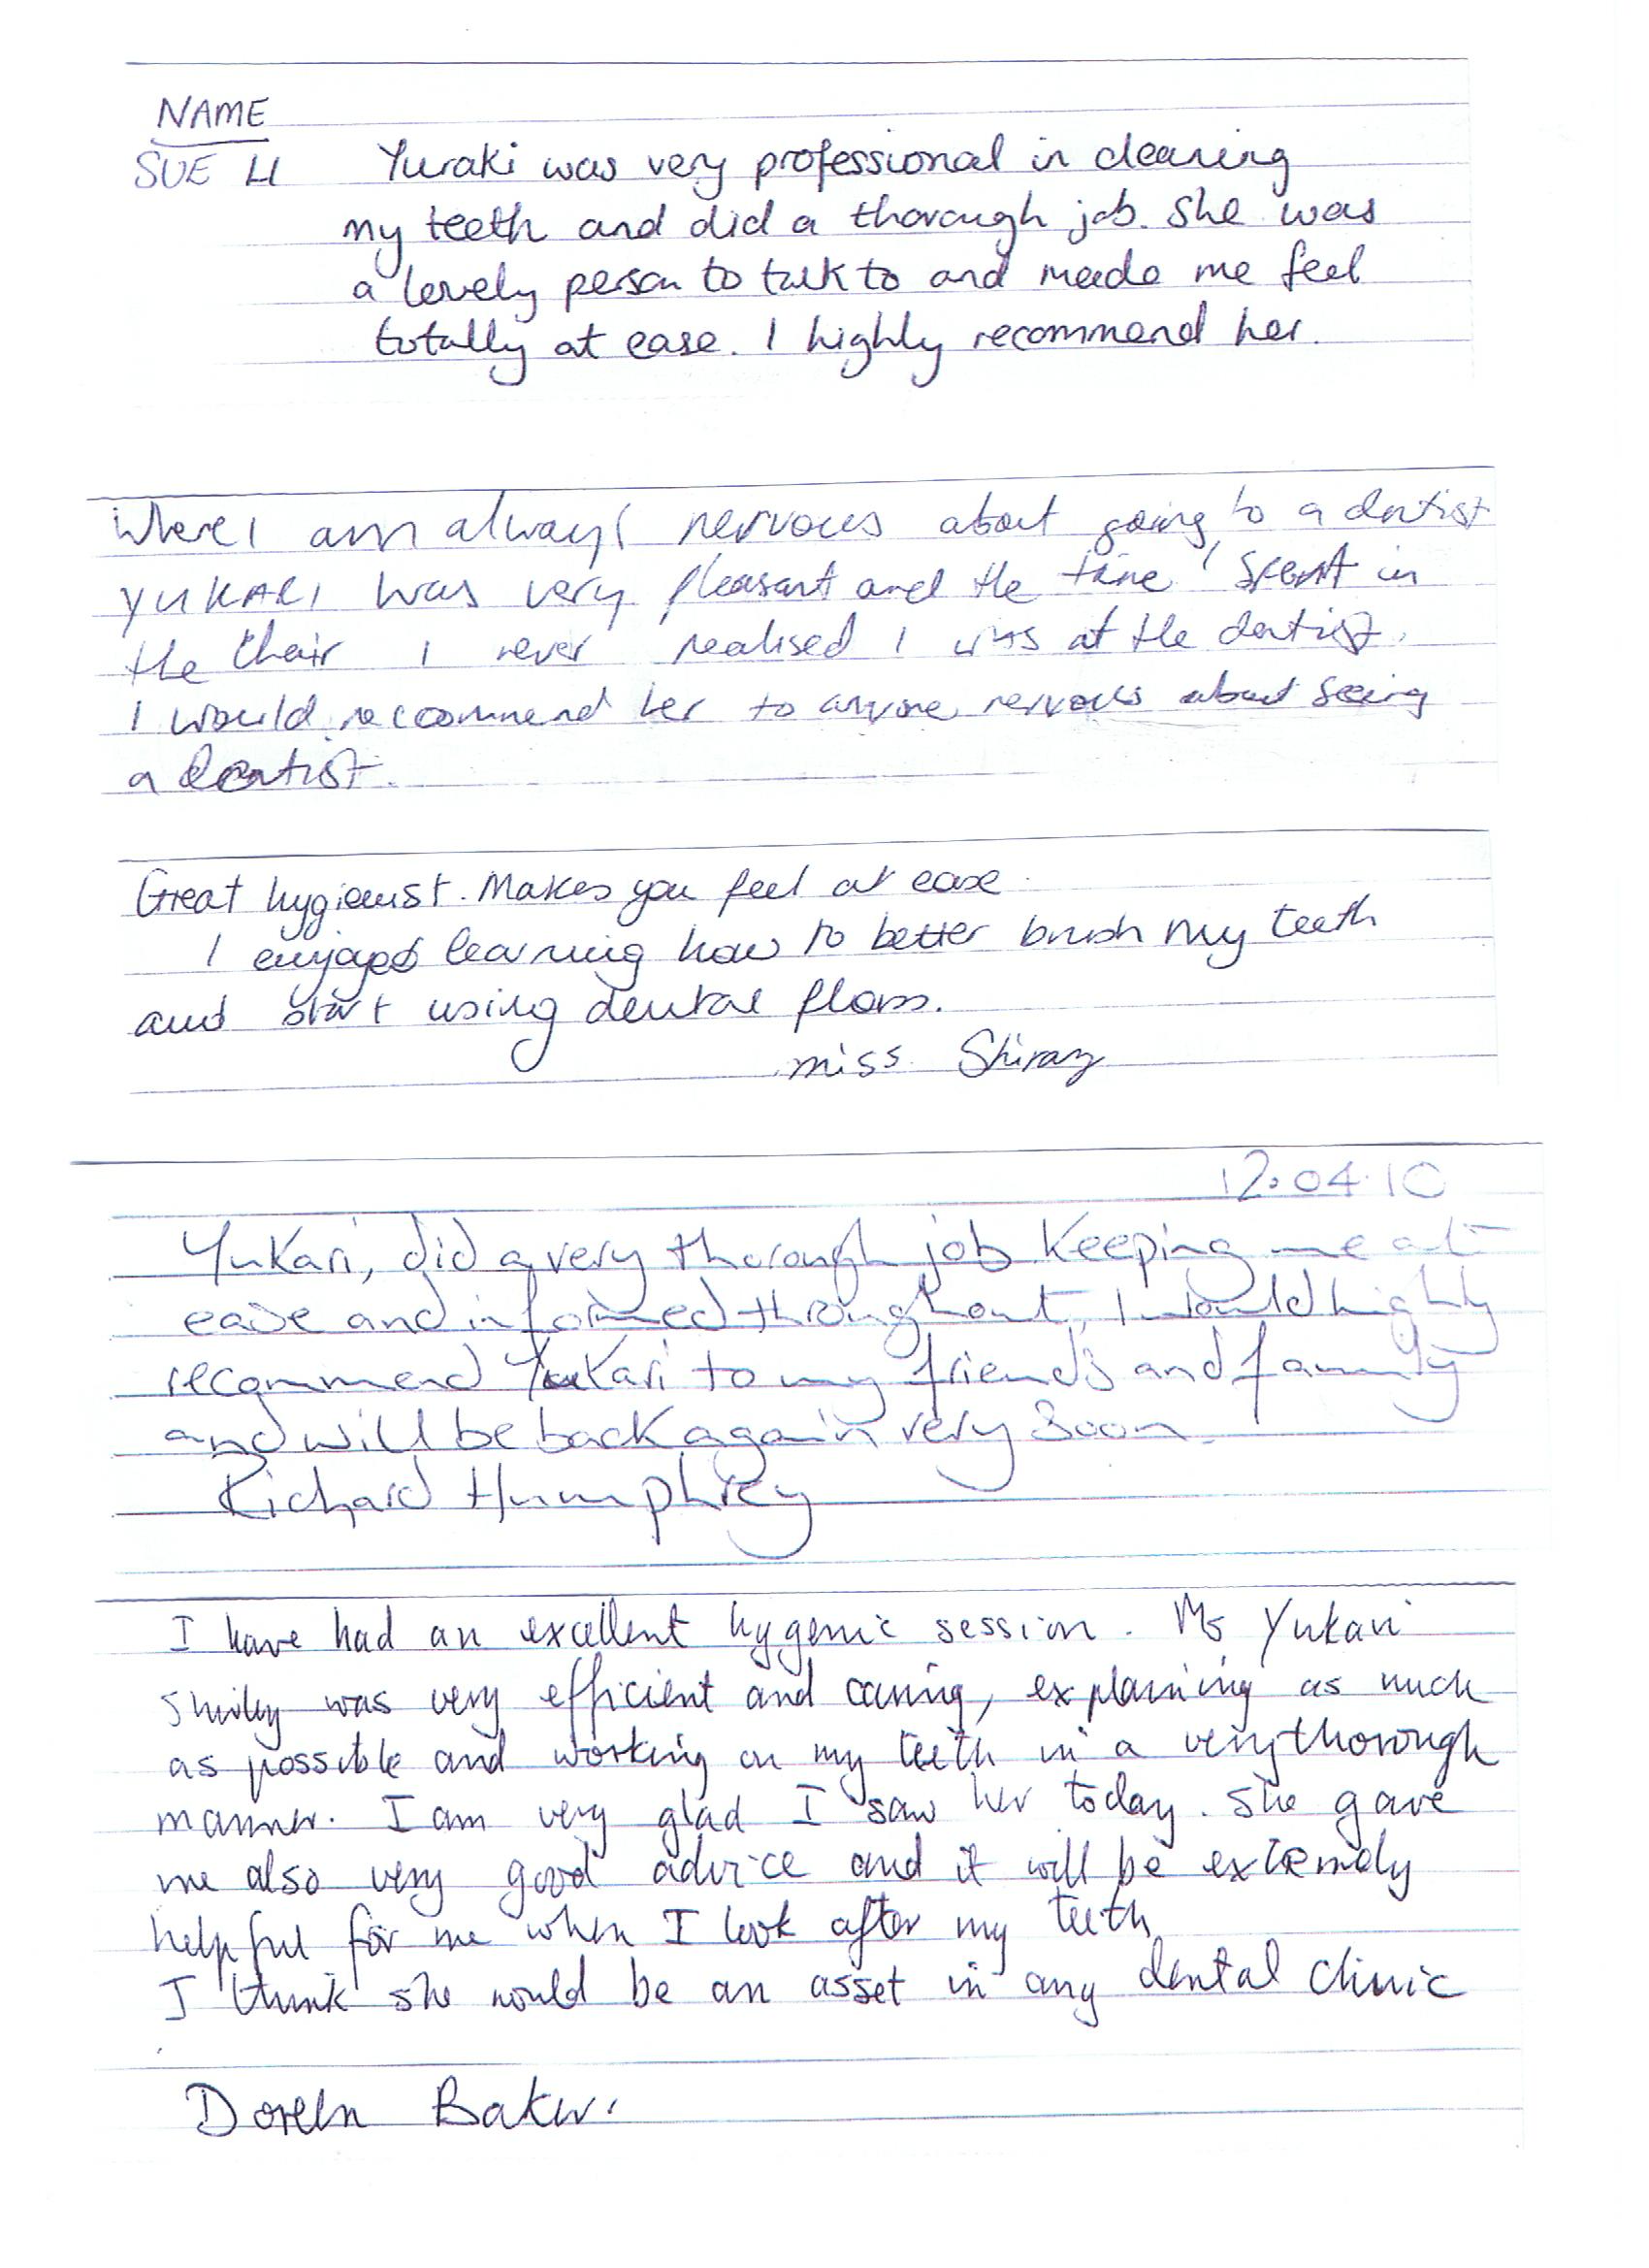 NAME
SUE LI Yuraki was very professional in cleaning
my teeth and did a thorough job. She was
a lovely person to talk to and made me feel
totally at ease. I highly recommend her.
Where I am always nervous about going to a dentist
YUKARI was very pleasant and the time I spent in
the chair I never realised I was at the dentist.
I would recommend her to anyone nervous about seeing
a dentist.
Great hygienist. Makes you feel at ease.
I enjoyed learning how to better brush my teeth
and start using dental floss.
miss. Shiraz
12.04.10
Yukari, did a very thorough job. Keeping me at
ease and informed throughout, I would highly
recommend Yukari to my friends and family
and will be back again very soon.
Richard Humphrey
I have had an excellent hygenic session. Ms Yukari
was very efficient and caring, explaining as much
as possible and working on my teeth in a very thorough
manner. I am very glad I saw her today. She gave
me also very good advice and it will be extremely
helpful for me when I look after my teeth.
I think she would be an asset in any dental clinic
Doreen Baker.